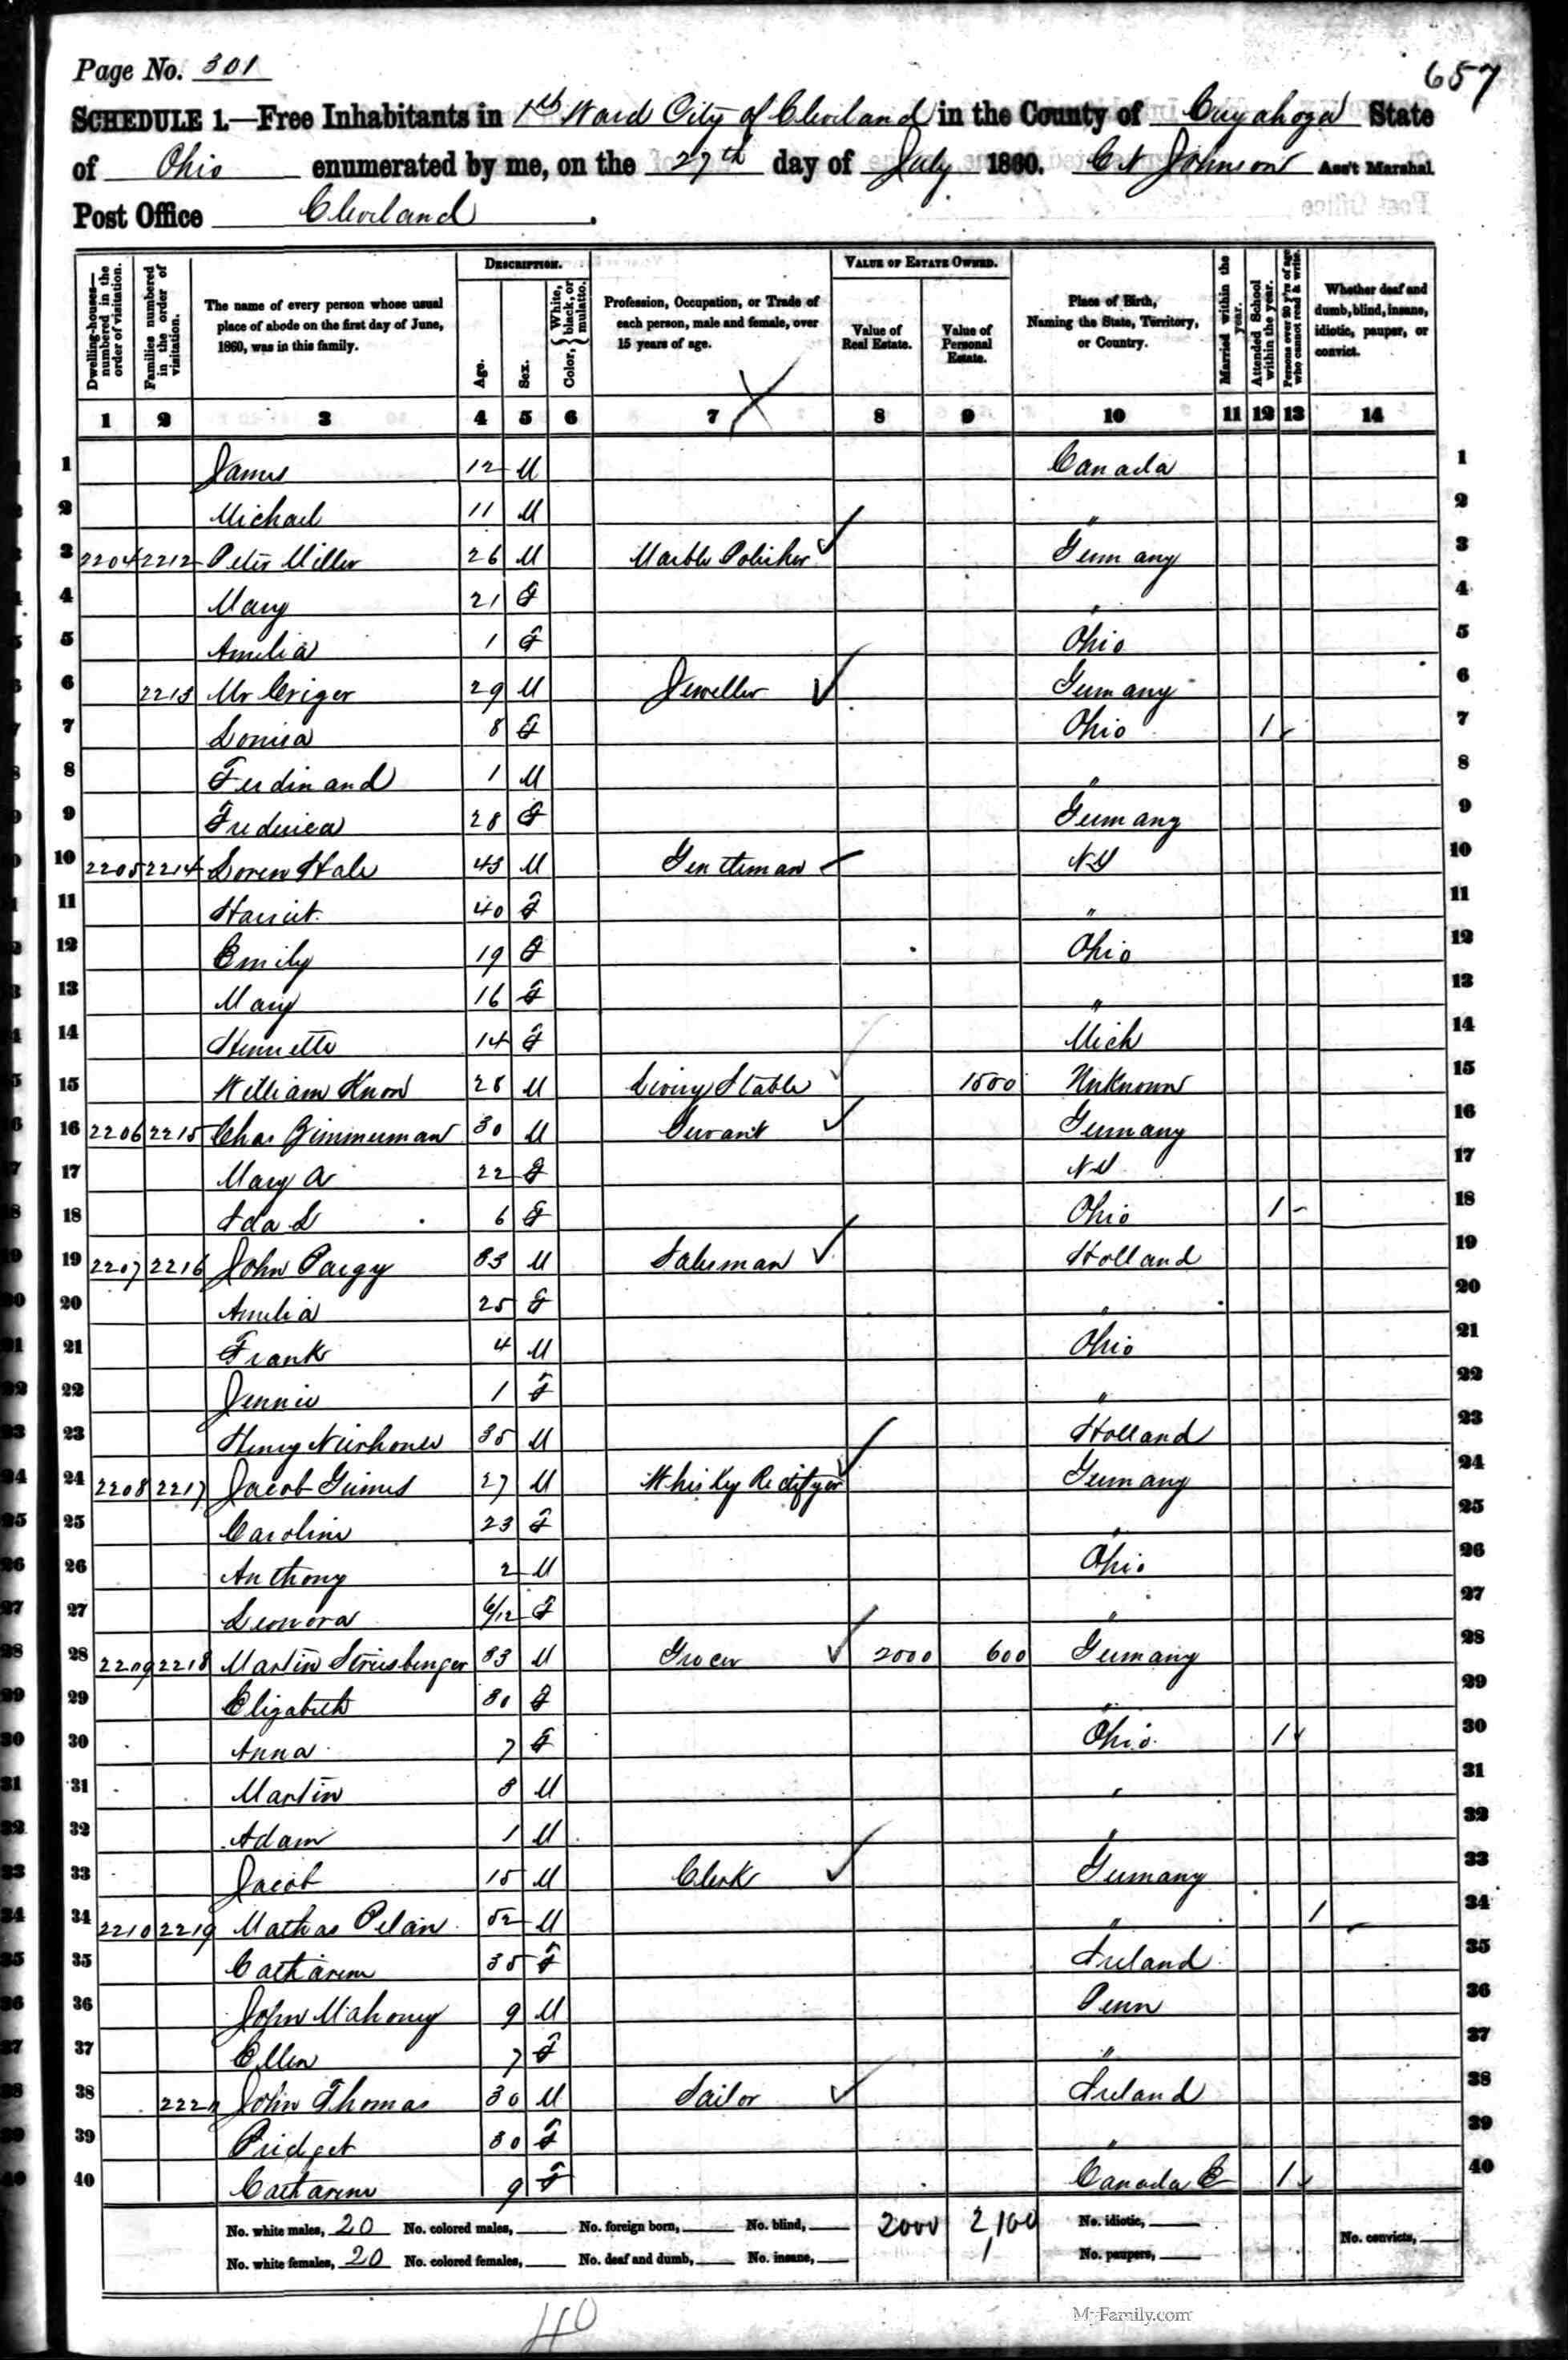 Page No. 301
657
SCHEDULE 1.—Free Inhabitants in 1st Ward City of Cleveland in the County of Cuyahoga State
of Ohio enumerated by me, on the 27th day of July 1860. Johnson Ass't Marshal
Post Office Cleveland.
DESCRIPTION. VALUE OF ESTATE OWNED.
Dwelling-houses—numbered in the order of visitation. Families numbered in the order of visitation. The name of every person whose usual place of abode on the first day of June, 1860, was in this family. Age. Sex. Color, {White, black, or mulatto. Profession, Occupation, or Trade of each person, male and female, over 15 years of age. Value of Real Estate. Value of Personal Estate. Place of Birth, Naming the State, Territory, or Country. Married within the year. Attended School within the year. Persons over 20 y'rs of age who cannot read & write. Whether deaf and dumb, blind, insane, idiotic, pauper, or convict.
1 2 3 4 5 6 7 8 9 10 11 12 13 14
1 James 12 M Canada 1
2 Michael 11 M " 2
3 2204 2212 Peter Miller 26 M Marble Polisher Germany 3
4 Mary 21 F " 4
5 Amelia 1 F Ohio 5
6 2213 Mr Criger 29 M Jeweller Germany 6
7 Louisa 8 F Ohio 1 7
8 Ferdinand 1 M " 8
9 Frederica 28 F Germany 9
10 2205 2214 Loren Hale 43 M Gentleman NY 10
11 Harriet 40 F " 11
12 Emily 19 F Ohio 12
13 Mary 16 F " 13
14 Henrietta 14 F Mich 14
15 William 28 M Livery Stable 1500 Unknown 15
16 2206 2215 Chas Zimmerman 30 M Servant Germany 16
17 Mary A 22 F NY 17
18 Ida L 6 F Ohio 1 18
19 2207 2216 John Pargy 33 M Salesman Holland 19
20 Amelia 25 F " 20
21 Frank 4 M Ohio 21
22 Jennie 1 F " 22
23 Henry 35 M Holland 23
24 2208 2217 Jacob Grimes 27 M Whisky Rectifyer Germany 24
25 Caroline 23 F " 25
26 Anthony 2 M Ohio 26
27 Leonora 6/12 F " 27
28 2209 2218 Martin Striesbenger 33 M Grocer 2000 600 Germany 28
29 Elizabeth 30 F " 29
30 Anna 7 F Ohio 1 30
31 Martin 8 M " 31
32 Adam 1 M " 32
33 Jacob 15 M Clerk Germany 33
34 2210 2219 Mathas Pelan 52 M " 1 34
35 Catharine 35 F Ireland 35
36 John Mahoney 9 M Penn 36
37 Ellen 7 F " 37
38 John Thomas 30 M Sailor Ireland 38
39 Bridget 30 F " 39
40 Catharine 9 F Canada E 1 40
No. white males, 20 No. colored males, No. foreign born, No. blind, 2000 2,100 No. idiotic,
No. white females, 20 No. colored females, No. deaf and dumb, No. insane, No. paupers, No. convicts,
40
MyFamily.com